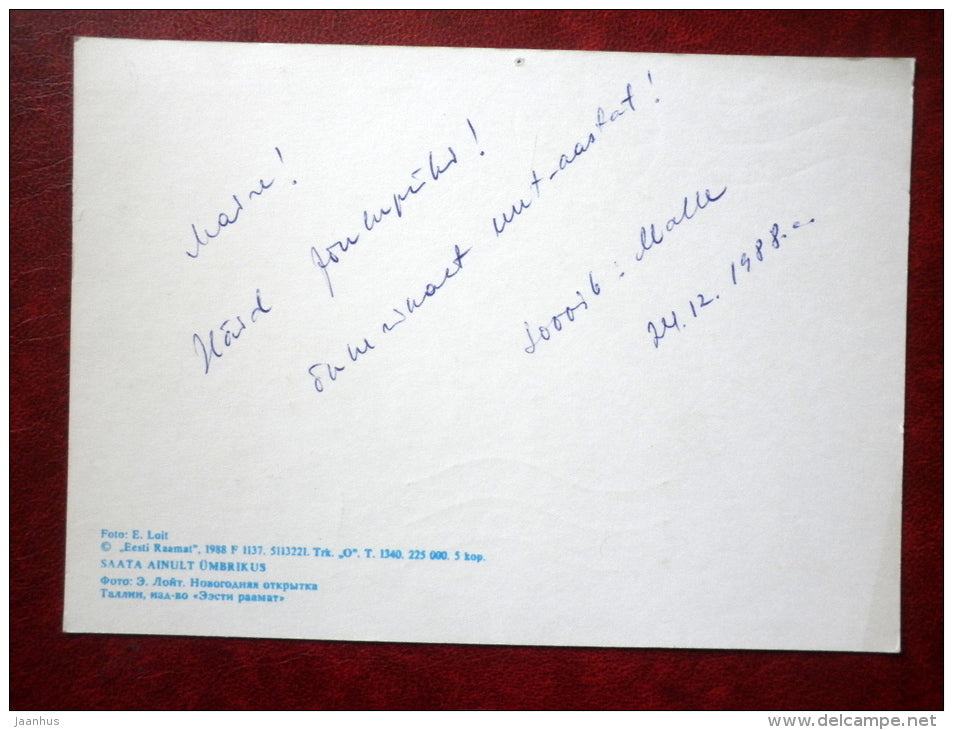 Maire!
Häid jõulupühi!
õnnerikast uut-aastat!
Soovib: Malle
24.12.1988.a.
Foto: E. Loit
© „Eesti Raamat", 1988 F 1137. 5113221. Trk. „O". T. 1340. 225 000. 5 kop.
SAATA AINULT ÜMBRIKUS
Фото: Э. Лойт. Новогодняя открытка
Таллин, изд-во «Ээсти раамат»
jaanhus
www.delcampe.net